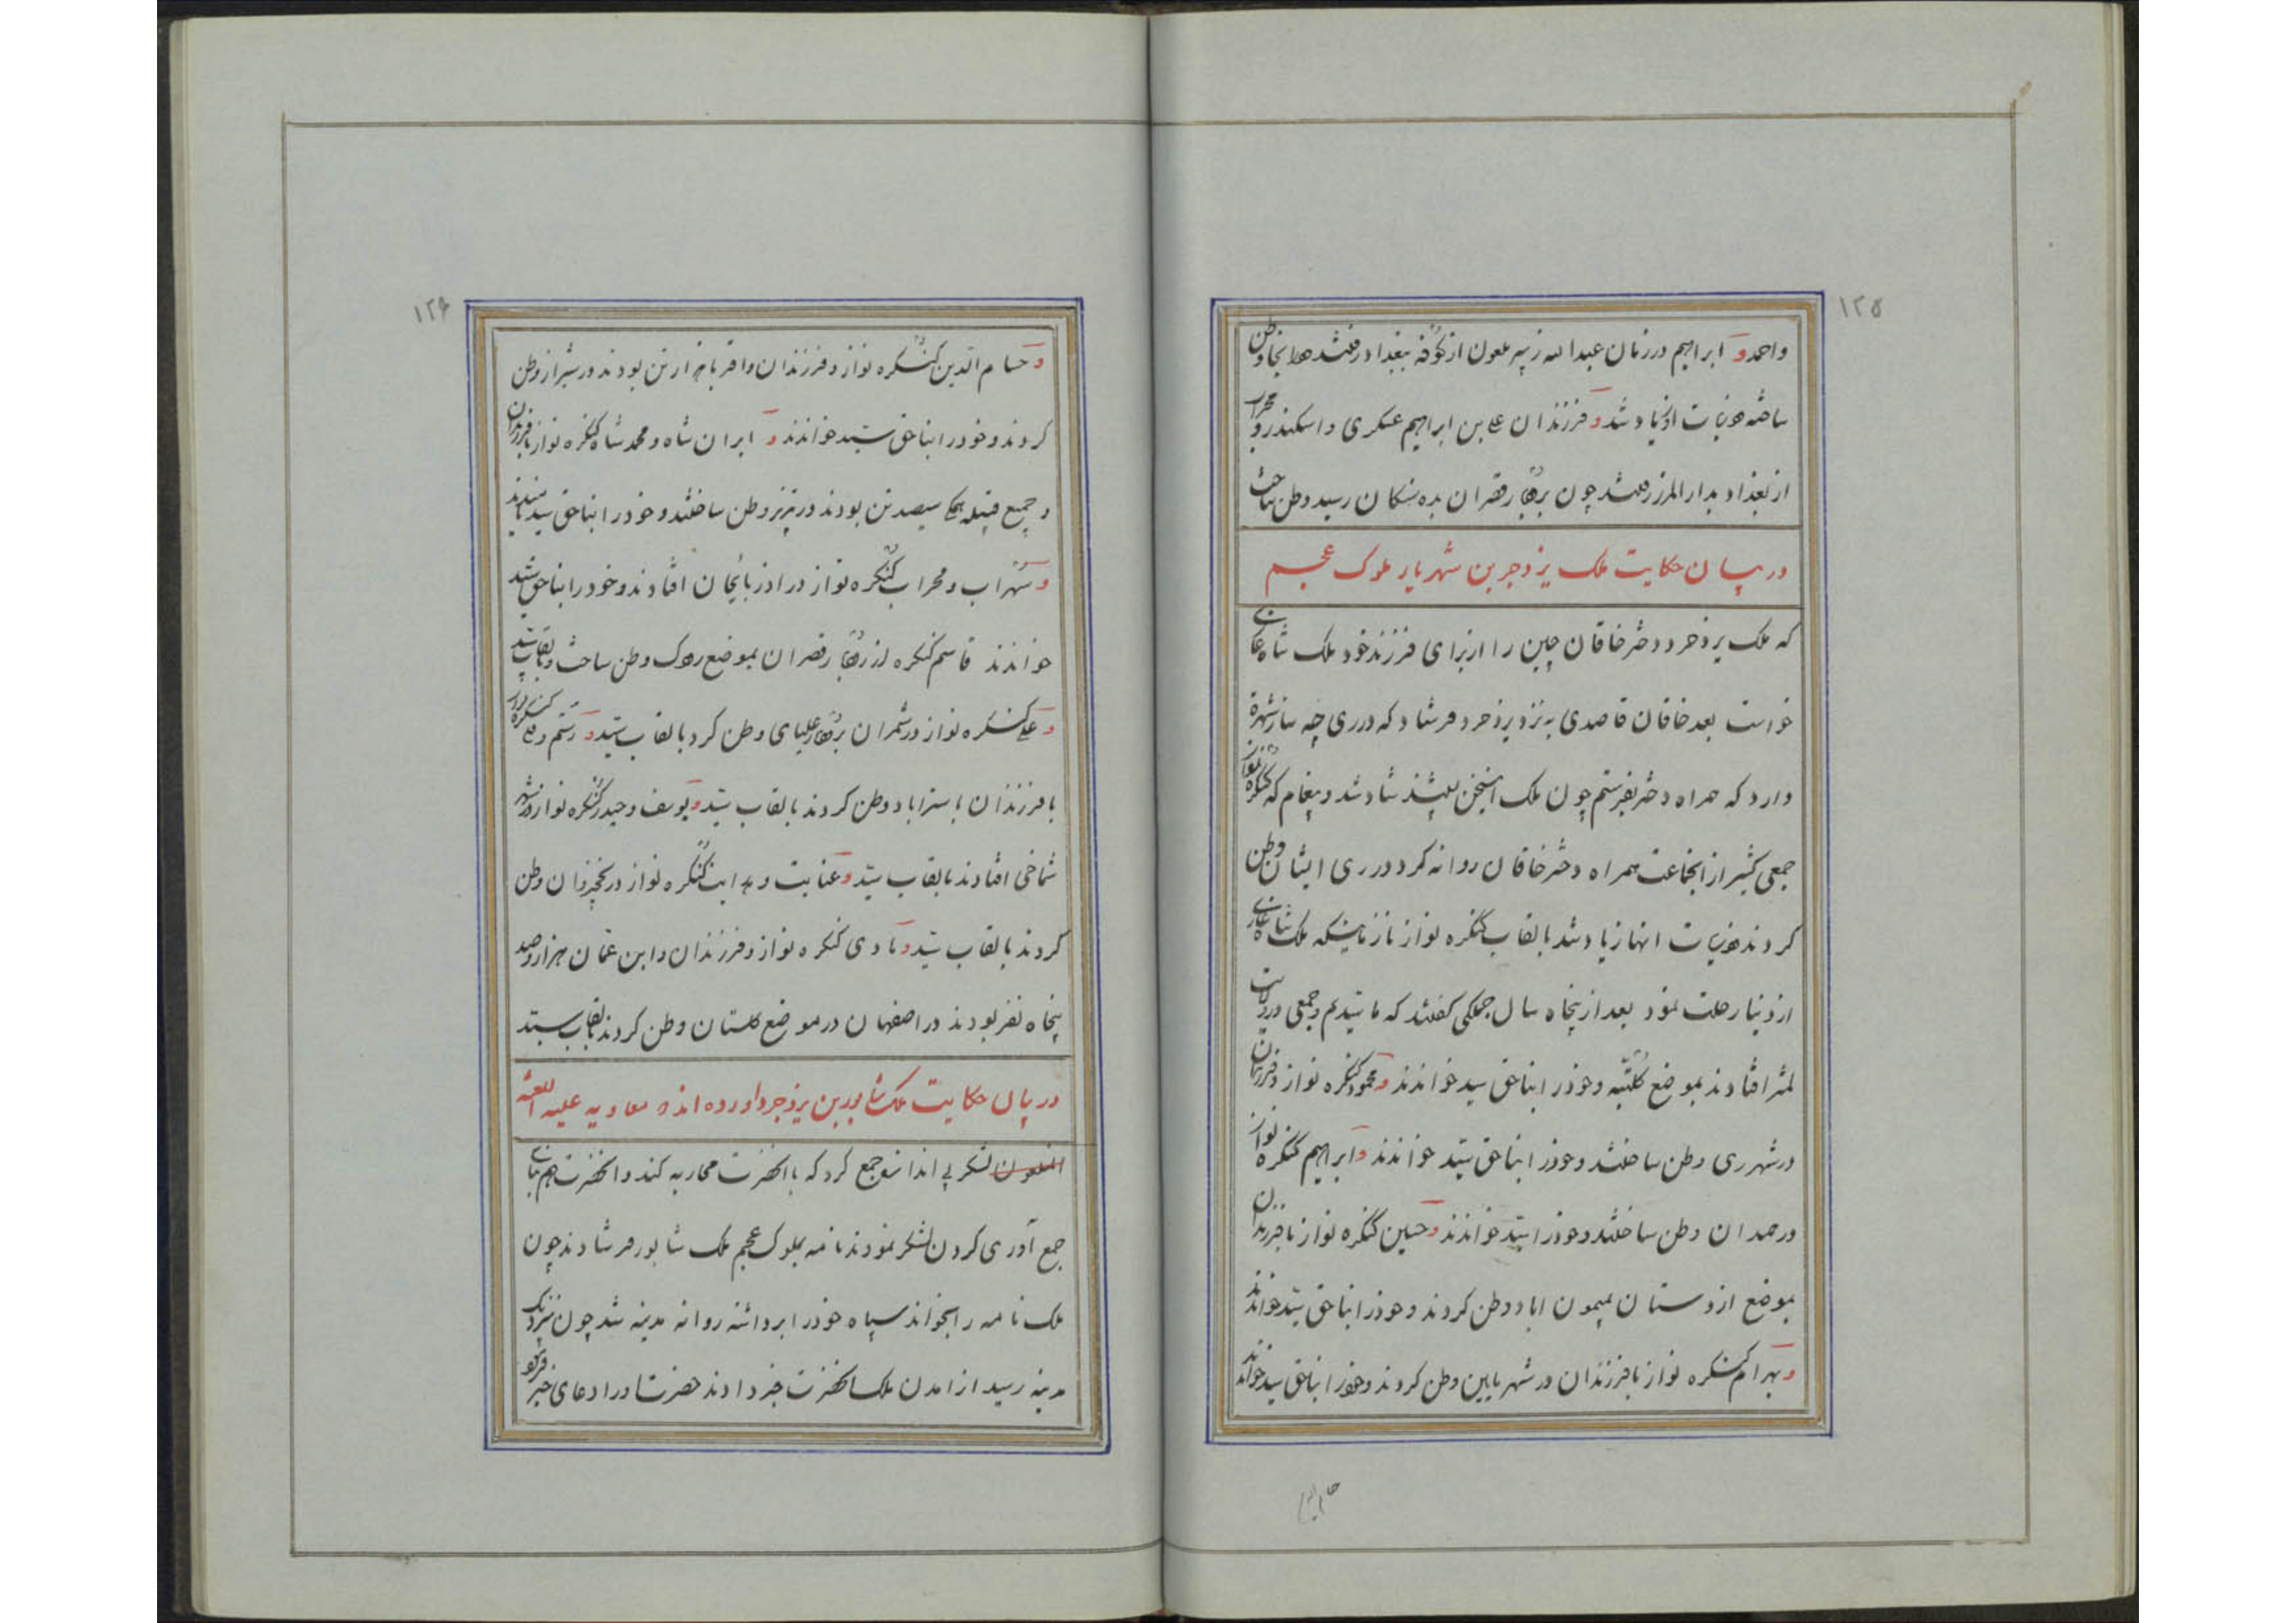 ۱۲۵
واحمد و ابراهیم در زمان عبدالله زبیر ملعون از کوفه ببغداد رفتند همانجا وطن
ساخته ذریات او زیاد شد و فرزندان علی بن ابراهیم عسکری و اسکندر و محراب
از بغداد بدارالمرز رفتند چون برودبار قصران بده نسکان رسید وطن ساخت
در بیان حکایت ملک یزدجر بن شهریار ملوک عجم
که ملک یزدجرد دختر خاقان چین را از برای فرزند خود ملک شاه غازی
خواست بعد خاقان قاصدی به نزد یزدجرد فرستاد که در ری چه ساز شهرة
دارد که همراه دختر بفرستم چون ملک این سخن بشنید شاد شد و پیغام که کنگره نواز
جمعی کثیر از انجماعت همراه دختر خاقان روانه کرد در ری ایشان وطن
کردند ذریات انها زیاد شد بالقاب کنگره نواز تا زمانیکه ملک شاه غازی
از دنیا رحلت نمود بعد از پنجاه سال جملگی گفتند که ما سیدیم و جمعی در ولایت
لمثر افتادند بموضع کلیه و خود را بناحق سید خواندند و محمود کنگره نواز و فرزندان
در شهر ری وطن ساختند و خود را بناحق سید خواندند و ابراهیم کنگره نواز
در همدان وطن ساختند و خود را سید خواندند و حسین کنگره نواز با فرزندان
بموضع اردستان میمون اباد وطن کردند و خود را بناحق سید خواندند
و بهرام کنگره نواز با فرزندان در شهر نایین وطن کردند و خود را بناحق سید خواندند
حسام الدین
۱۲۶
و حسام الدین کنگره نواز و فرزندان و اقربا هزار تن بودند در شیراز وطن
کردند و خود را بناحق سید خواندند و ایران شاه و محمد شاه کنگره نواز با فرزندان
و جمیع قبیله همگی سیصد تن بودند در تبریز وطن ساختند و خود را بناحق سید نامیدند
و سهراب و محراب کنگره نواز در اذربایجان افتادند و خود را بناحق سید
خواندند قاسم کنگره از رودبار قصران بموضع روک وطن ساخت و بالقاب سید
و علی کنگره نواز در شمران برودبار علیای وطن کرد بالقاب سید و رستم و علی کنگره نواز
با فرزندان باستراباد وطن کردند بالقاب سید و یوسف و حیدر کنگره نواز در شهر
شماخی افتادند بالقاب سید و عنایت و هدایت کنگره نواز در نخجوان وطن
کردند بالقاب سید و هادی کنگره نواز و فرزندان و ابن عمان هزار و صد
پنجاه نفر بودند در اصفهان در موضع گلستان وطن کردند بالقاب سید
در بیان حکایت ملک شاپور بن یزدجرد اورده اند که معاویه علیه اللعنه
الملعون لشکر بی اندازه جمع کرد که با انحضرت محاربه کند و انحضرت هم بنای
جمع آوری کردن لشکر نمودند نامه بملوک عجم ملک شاپور فرستادند چون
ملک نامه را بخواند سپاه خود را برداشته روانه مدینه شد چون نزدیک
مدینه رسید از امدن ملک بانحضرت خبر دادند حضرت او را دعای خیر فرمود